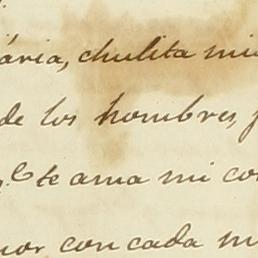 ária, chulita mi
de los hombres,
te ama mi co
mor con cada m